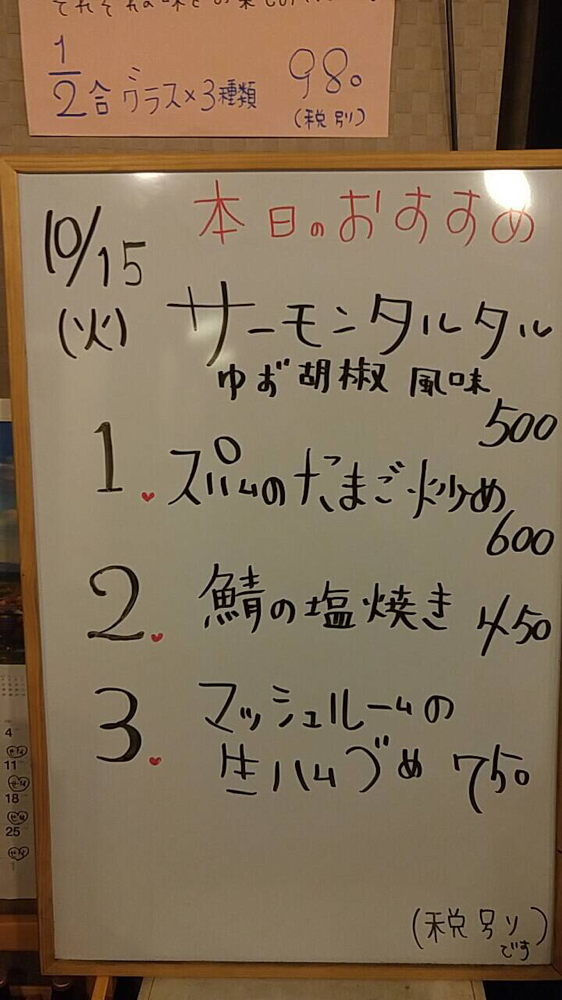 1/2合 グラス×3種類 980
(税別)
10/15
(火)
本日のおすすめ
サーモンタルタル
ゆず胡椒 風味
500
1. スパムのたまご炒め
600
2. 鯖の塩焼き 450
3. マッシュルームの
生ハムづめ 750
(税別)
です
4
11
18
25